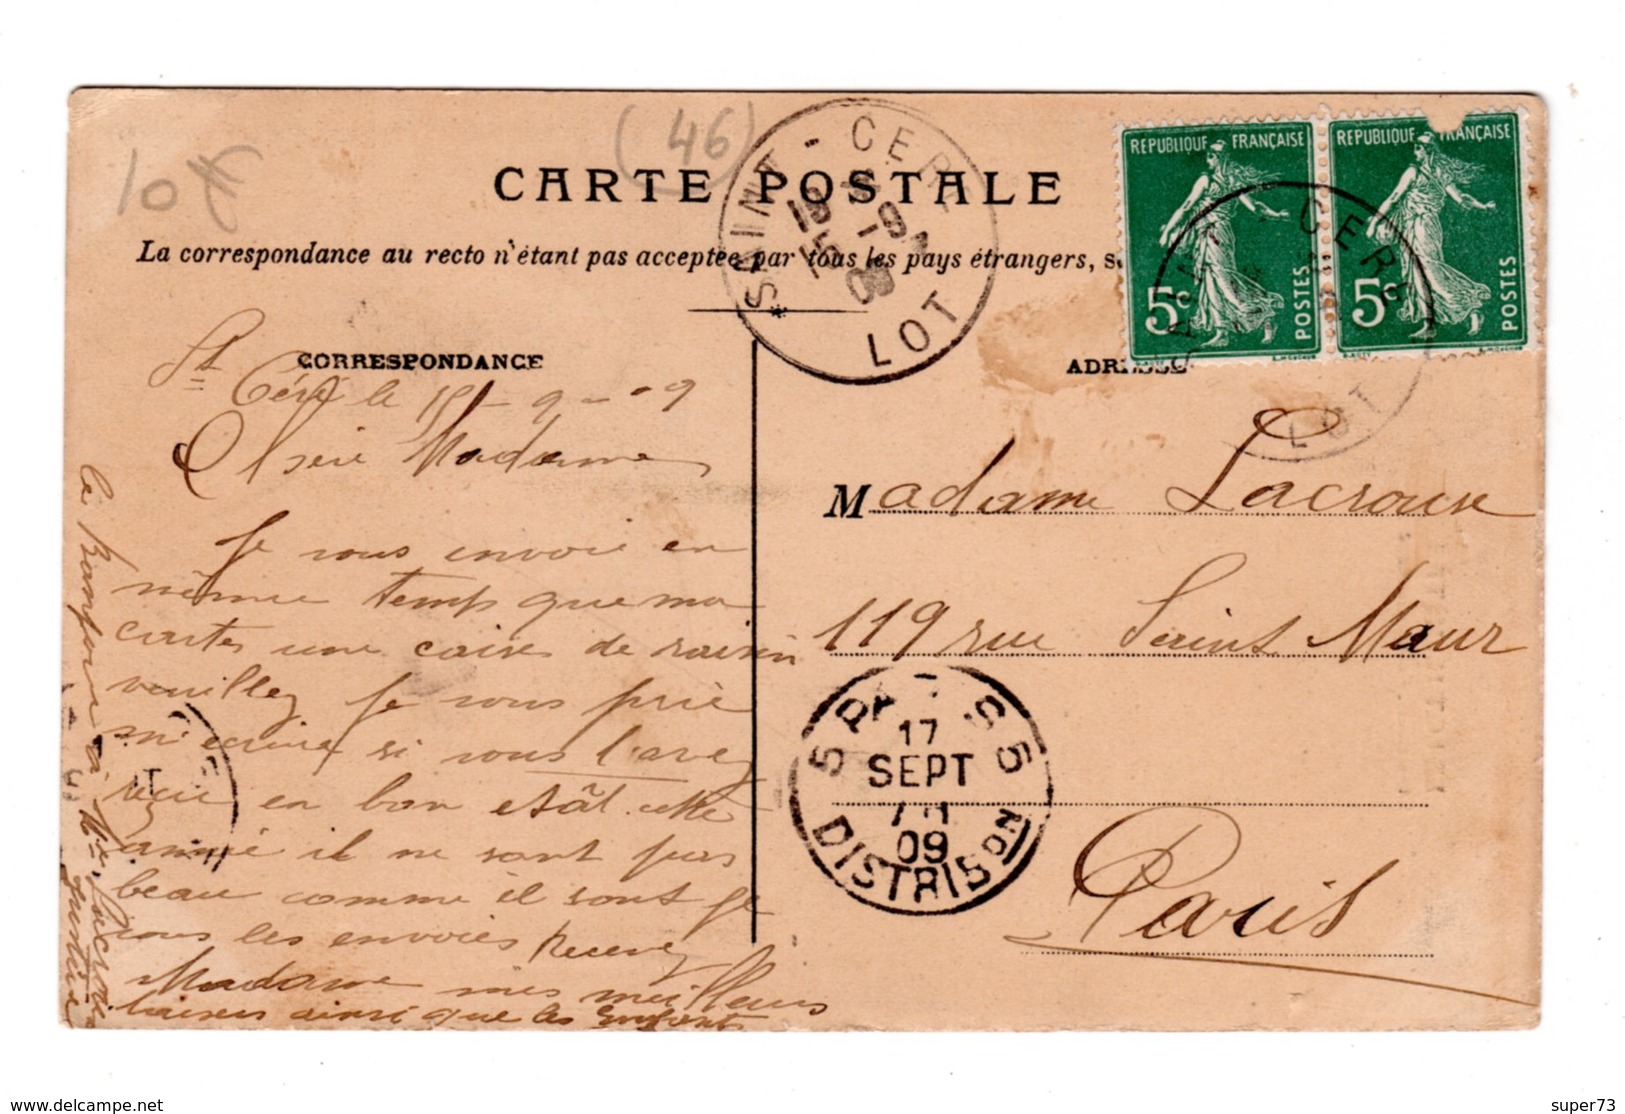 10 €
(46)
CARTE POSTALE
La correspondance au recto n'étant pas acceptée par tous les pays étrangers, s
SAINT - CERE
LOT
*
REPUBLIQUE FRANÇAISE
5c
POSTES
REPUBLIQUE FRANÇAISE
5c
POSTES
SAINT CERE
LOT
CORRESPONDANCE
ADRESSE
St Céré le 15 - 9 - 09
Chère Madame
Je vous envoie en
même temps que ma
carte une caise de raisin
veuillez je vous prie
m'ecrire si vous l'avez
reçu en bon etât. cette
année il ne sont pas
beau comme il sont je
vous les envoies Recevez
Madame mes meilleurs
baisers ainsi que les enfants
le Bonjour à Mr. Lacroux
Madame Lacroux
119 rue Saint Maur
Paris
5 PARIS 5
17
SEPT
09
DISTRIBON
delcampe.net
super73